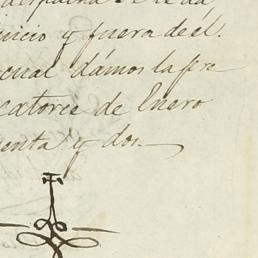 uicio y fuera de él.
cual dámos la pre
catorce de Enero
enta y dos.